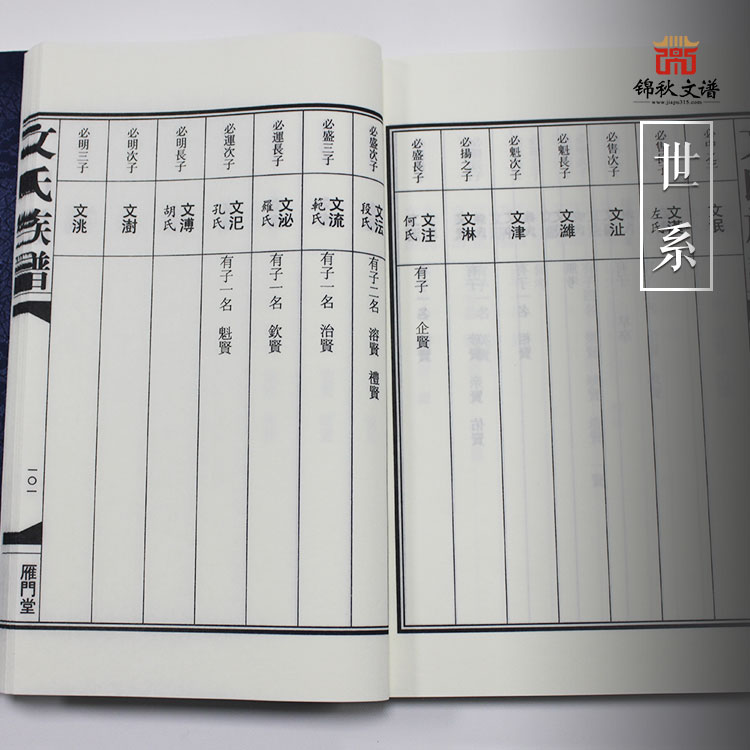 锦秋文谱
www.jiapu315.com
世系
必售次子
文沚
必魁長子
文濰
必魁次子
文津
必揚之子
文淋
必盛長子
文注
何氏
有子 企賢
必盛次子
文沄
段氏
有子二名 溶賢 禮賢
必盛三子
文流
範氏
有子一名 治賢
必運長子
文泌
羅氏
有子一名 欽賢
必運次子
文汜
孔氏
有子一名 魁賢
必明長子
文溥
胡氏
必明次子
文澍
必明三子
文洮
文氏族譜
一〇一
雁門堂
左氏
文珉